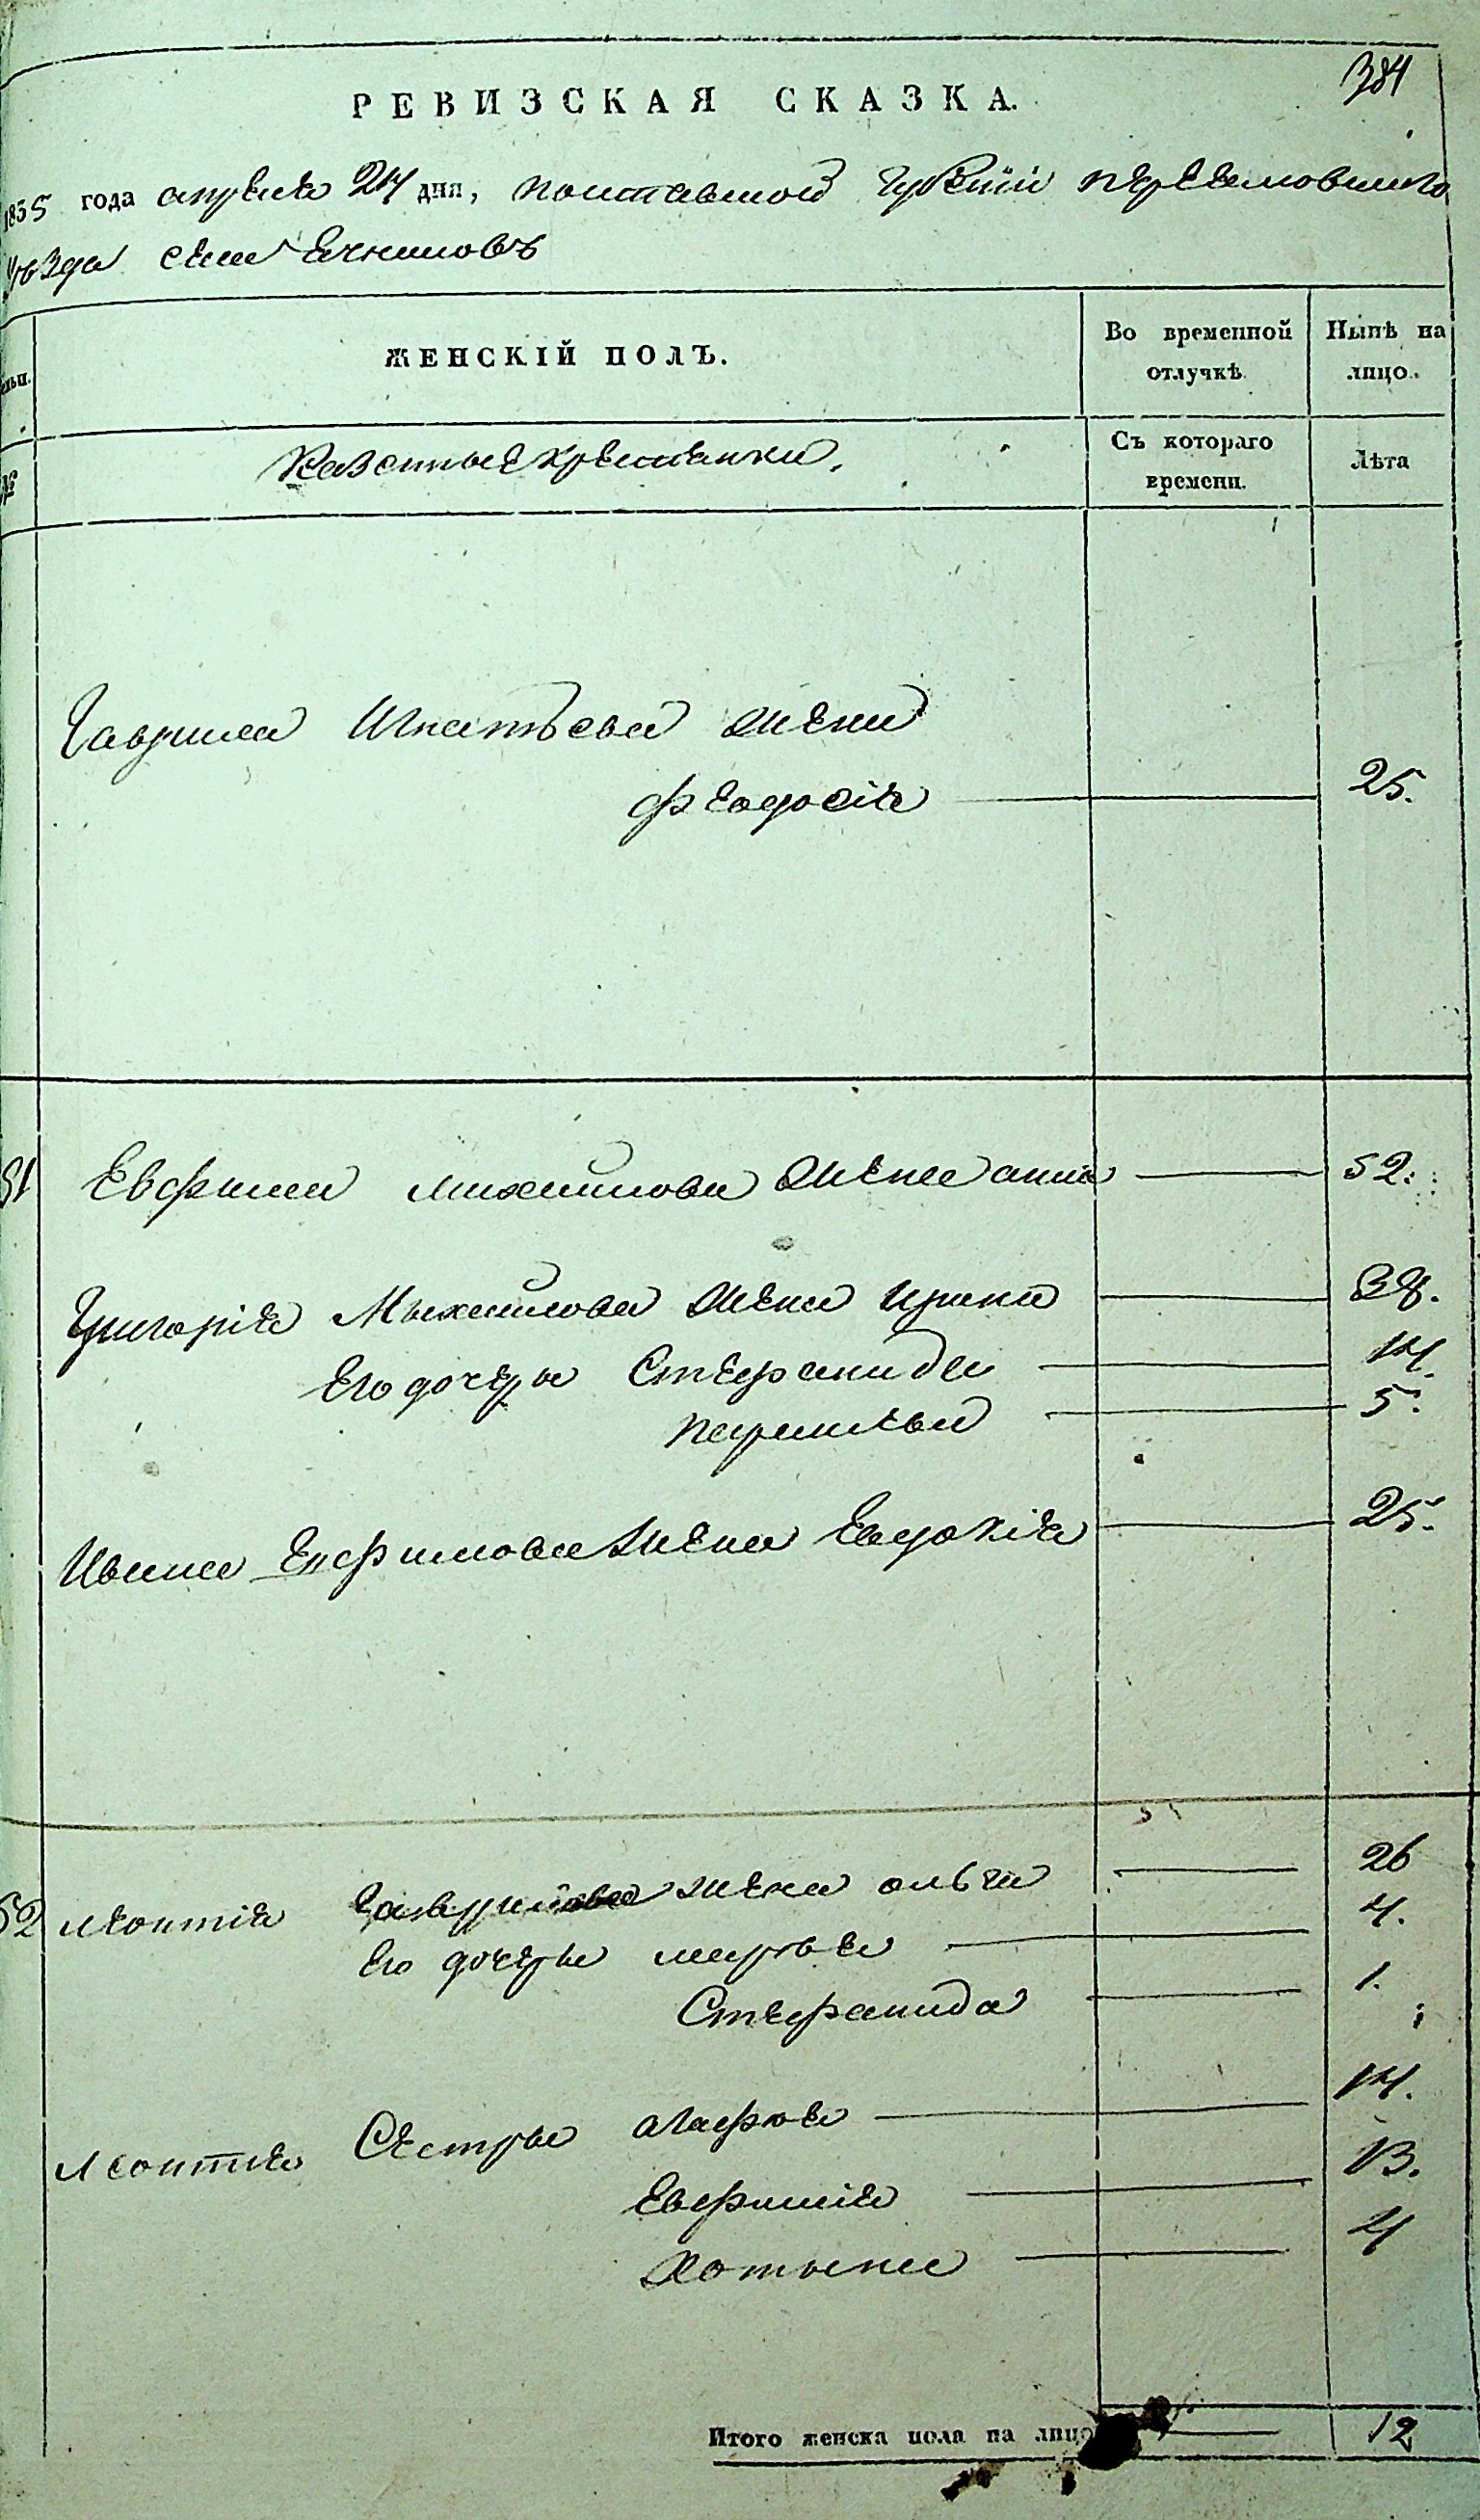 384
РЕВИЗСКАЯ СКАЗКА.
1835 года апреля 24 дня, полтавской губернии переяславского
уѣзда села
ЖЕНСКІЙ ПОЛЪ.
Во временной отлучкѣ.
Ныпѣ на лицо.
№
Казенные крестянки.
Съ котораго времени.
Лѣта
Гаврила Игнатьева жена
Феодосія 25.
51 Евфима михайлова жена анна 52.
Григорія Михайлова жена ирина 38.
Его дочеры Стефанида 14.
парасковя 5.
Ивана Ефимова жена Евдокія 25.
52 леонтія Гаврилова жена ольга 26
Его дочеры марья 4.
Стефанида 1.
леонтія Сестры агафія 14.
Евфимія 13.
Хотына 4
Итого женска пола на лицо 12